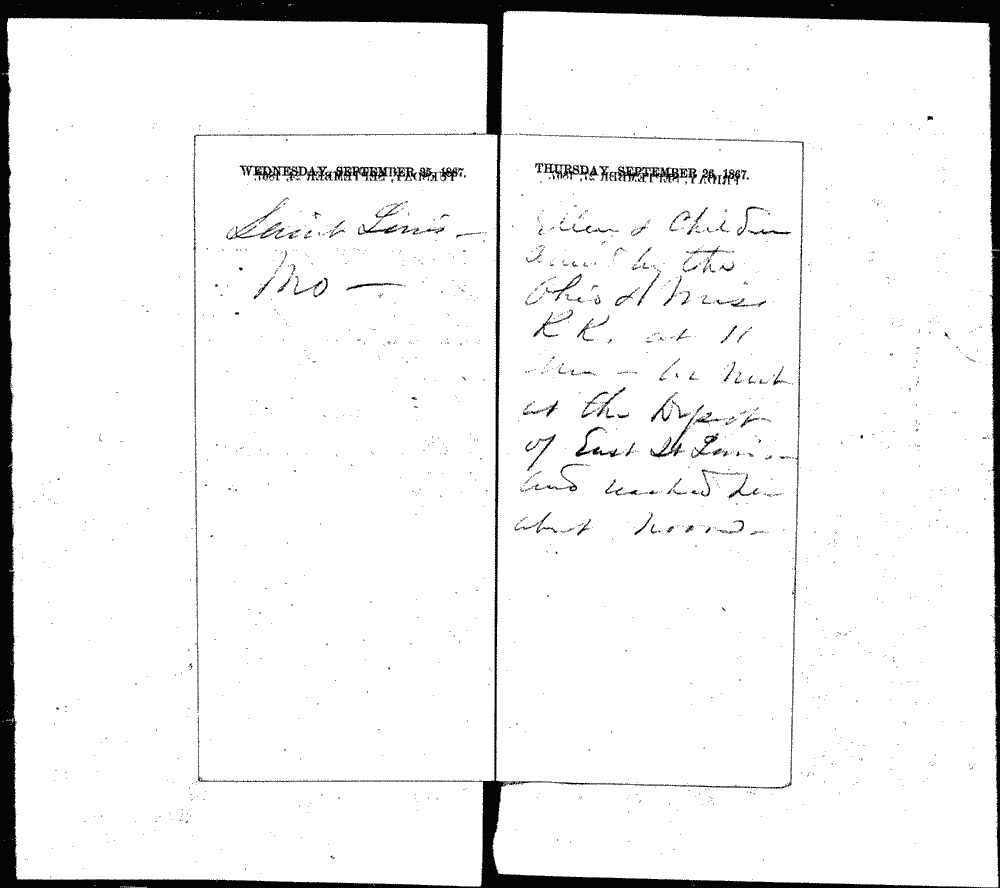 WEDNESDAY, SEPTEMBER 25, 1867.
Saint Louis –
Mo –
THURSDAY, SEPTEMBER 26, 1867.
Ellen & Children
by the
Ohio & Miss
R R. at 11
at the Depot
of East St Louis –
and reached
about noon –